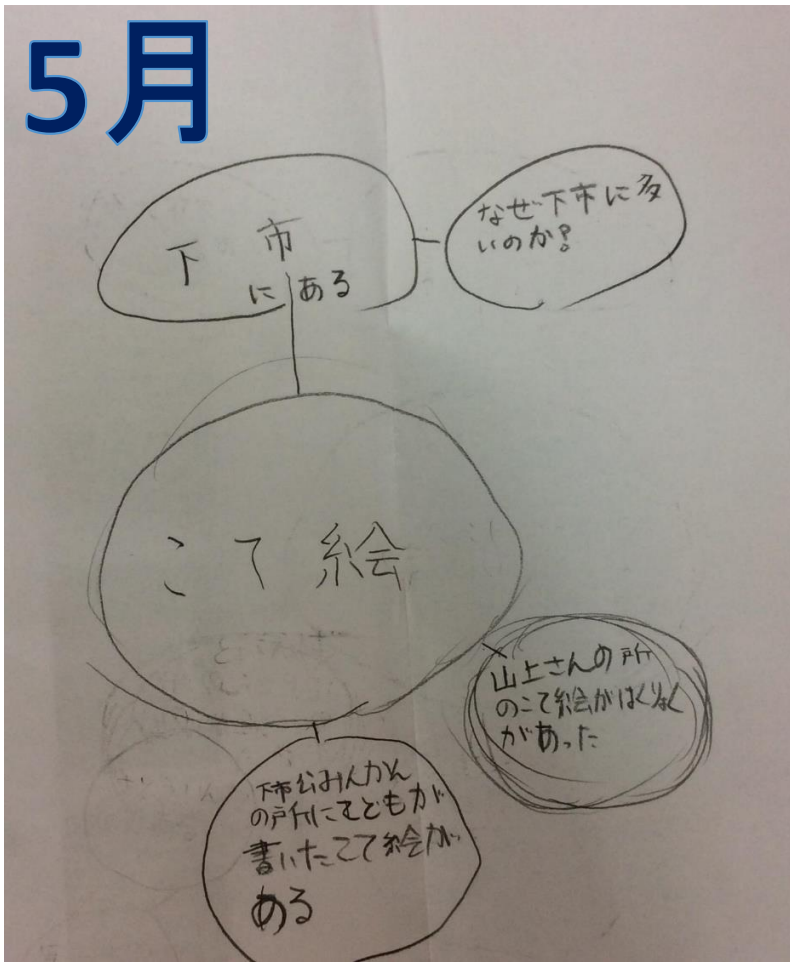 5月
下市
にある
なぜ下市に多
いのか?
こて絵
山上さんの所
のこて絵がはくりょく
があった
下市公みんかん
の所にこどもが
書いたこて絵が
ある